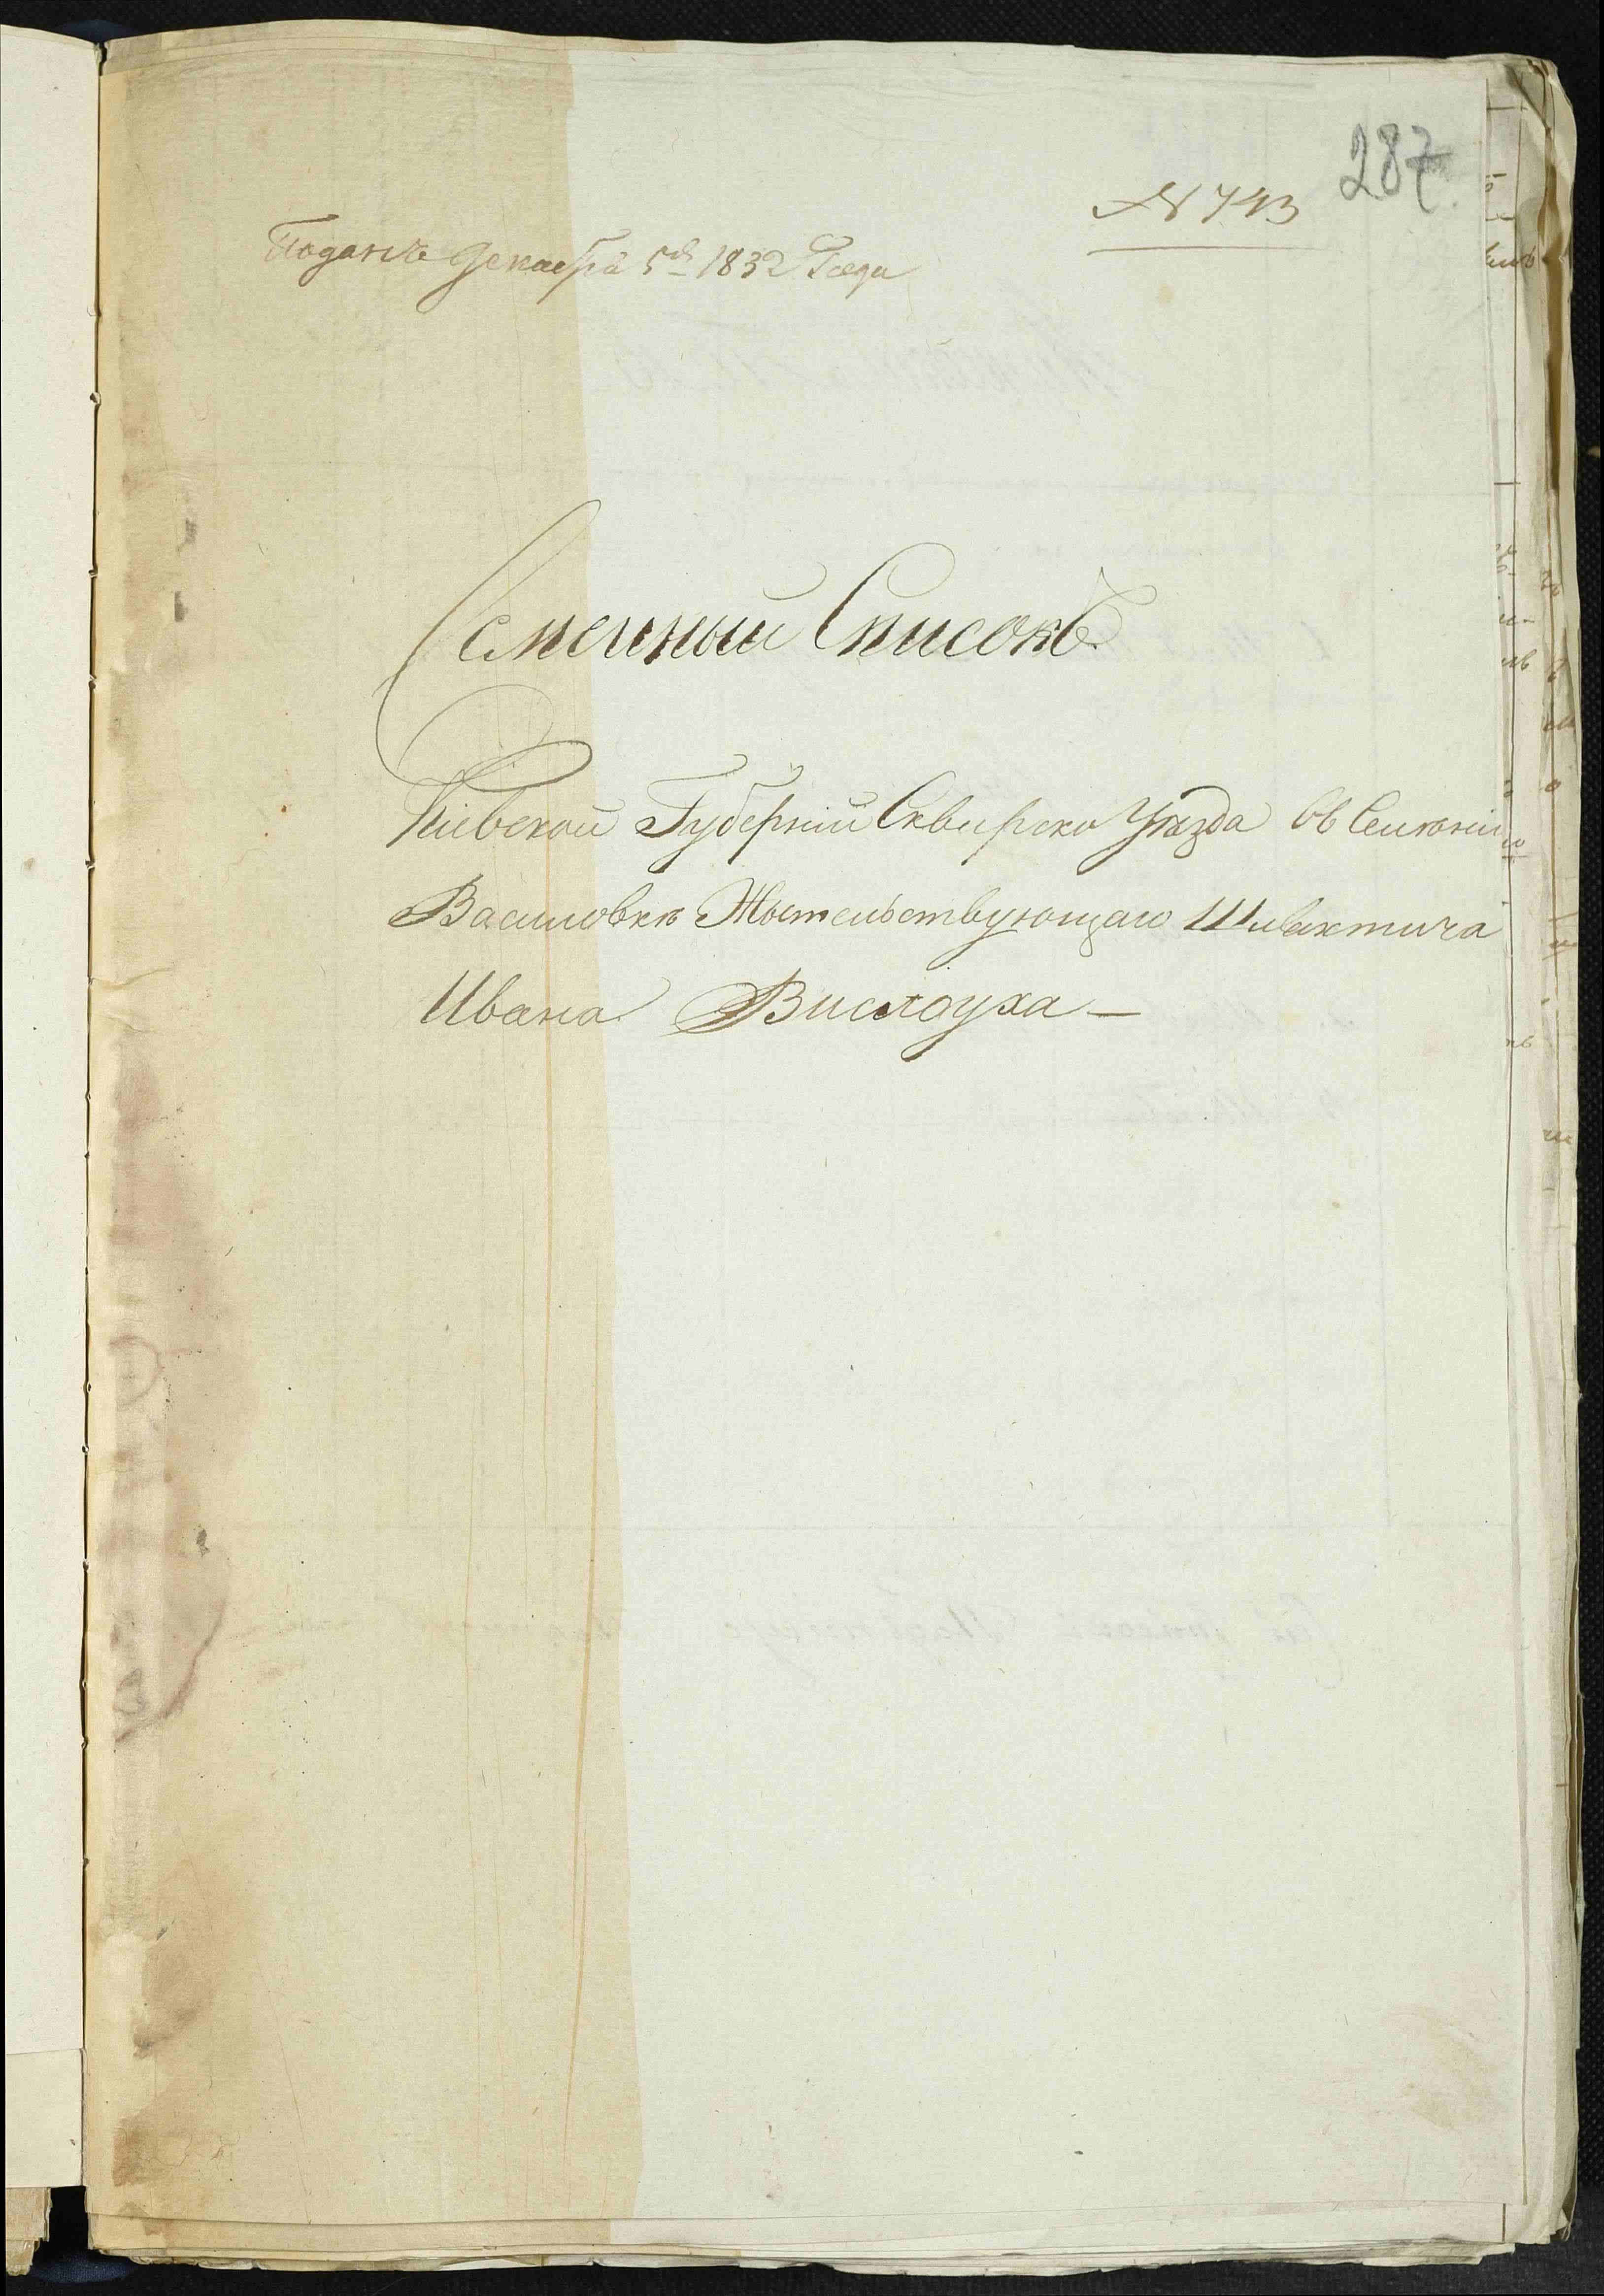 287
№ 743
Поданъ Декабра 5го 1832 Года
Семейный Списокъ
Киевской Губерніи Сквирско Уѣзда Въ Селѣніи
Василовкѣ Жытельствующаго Шляхтича
Ивана Вислоуха —